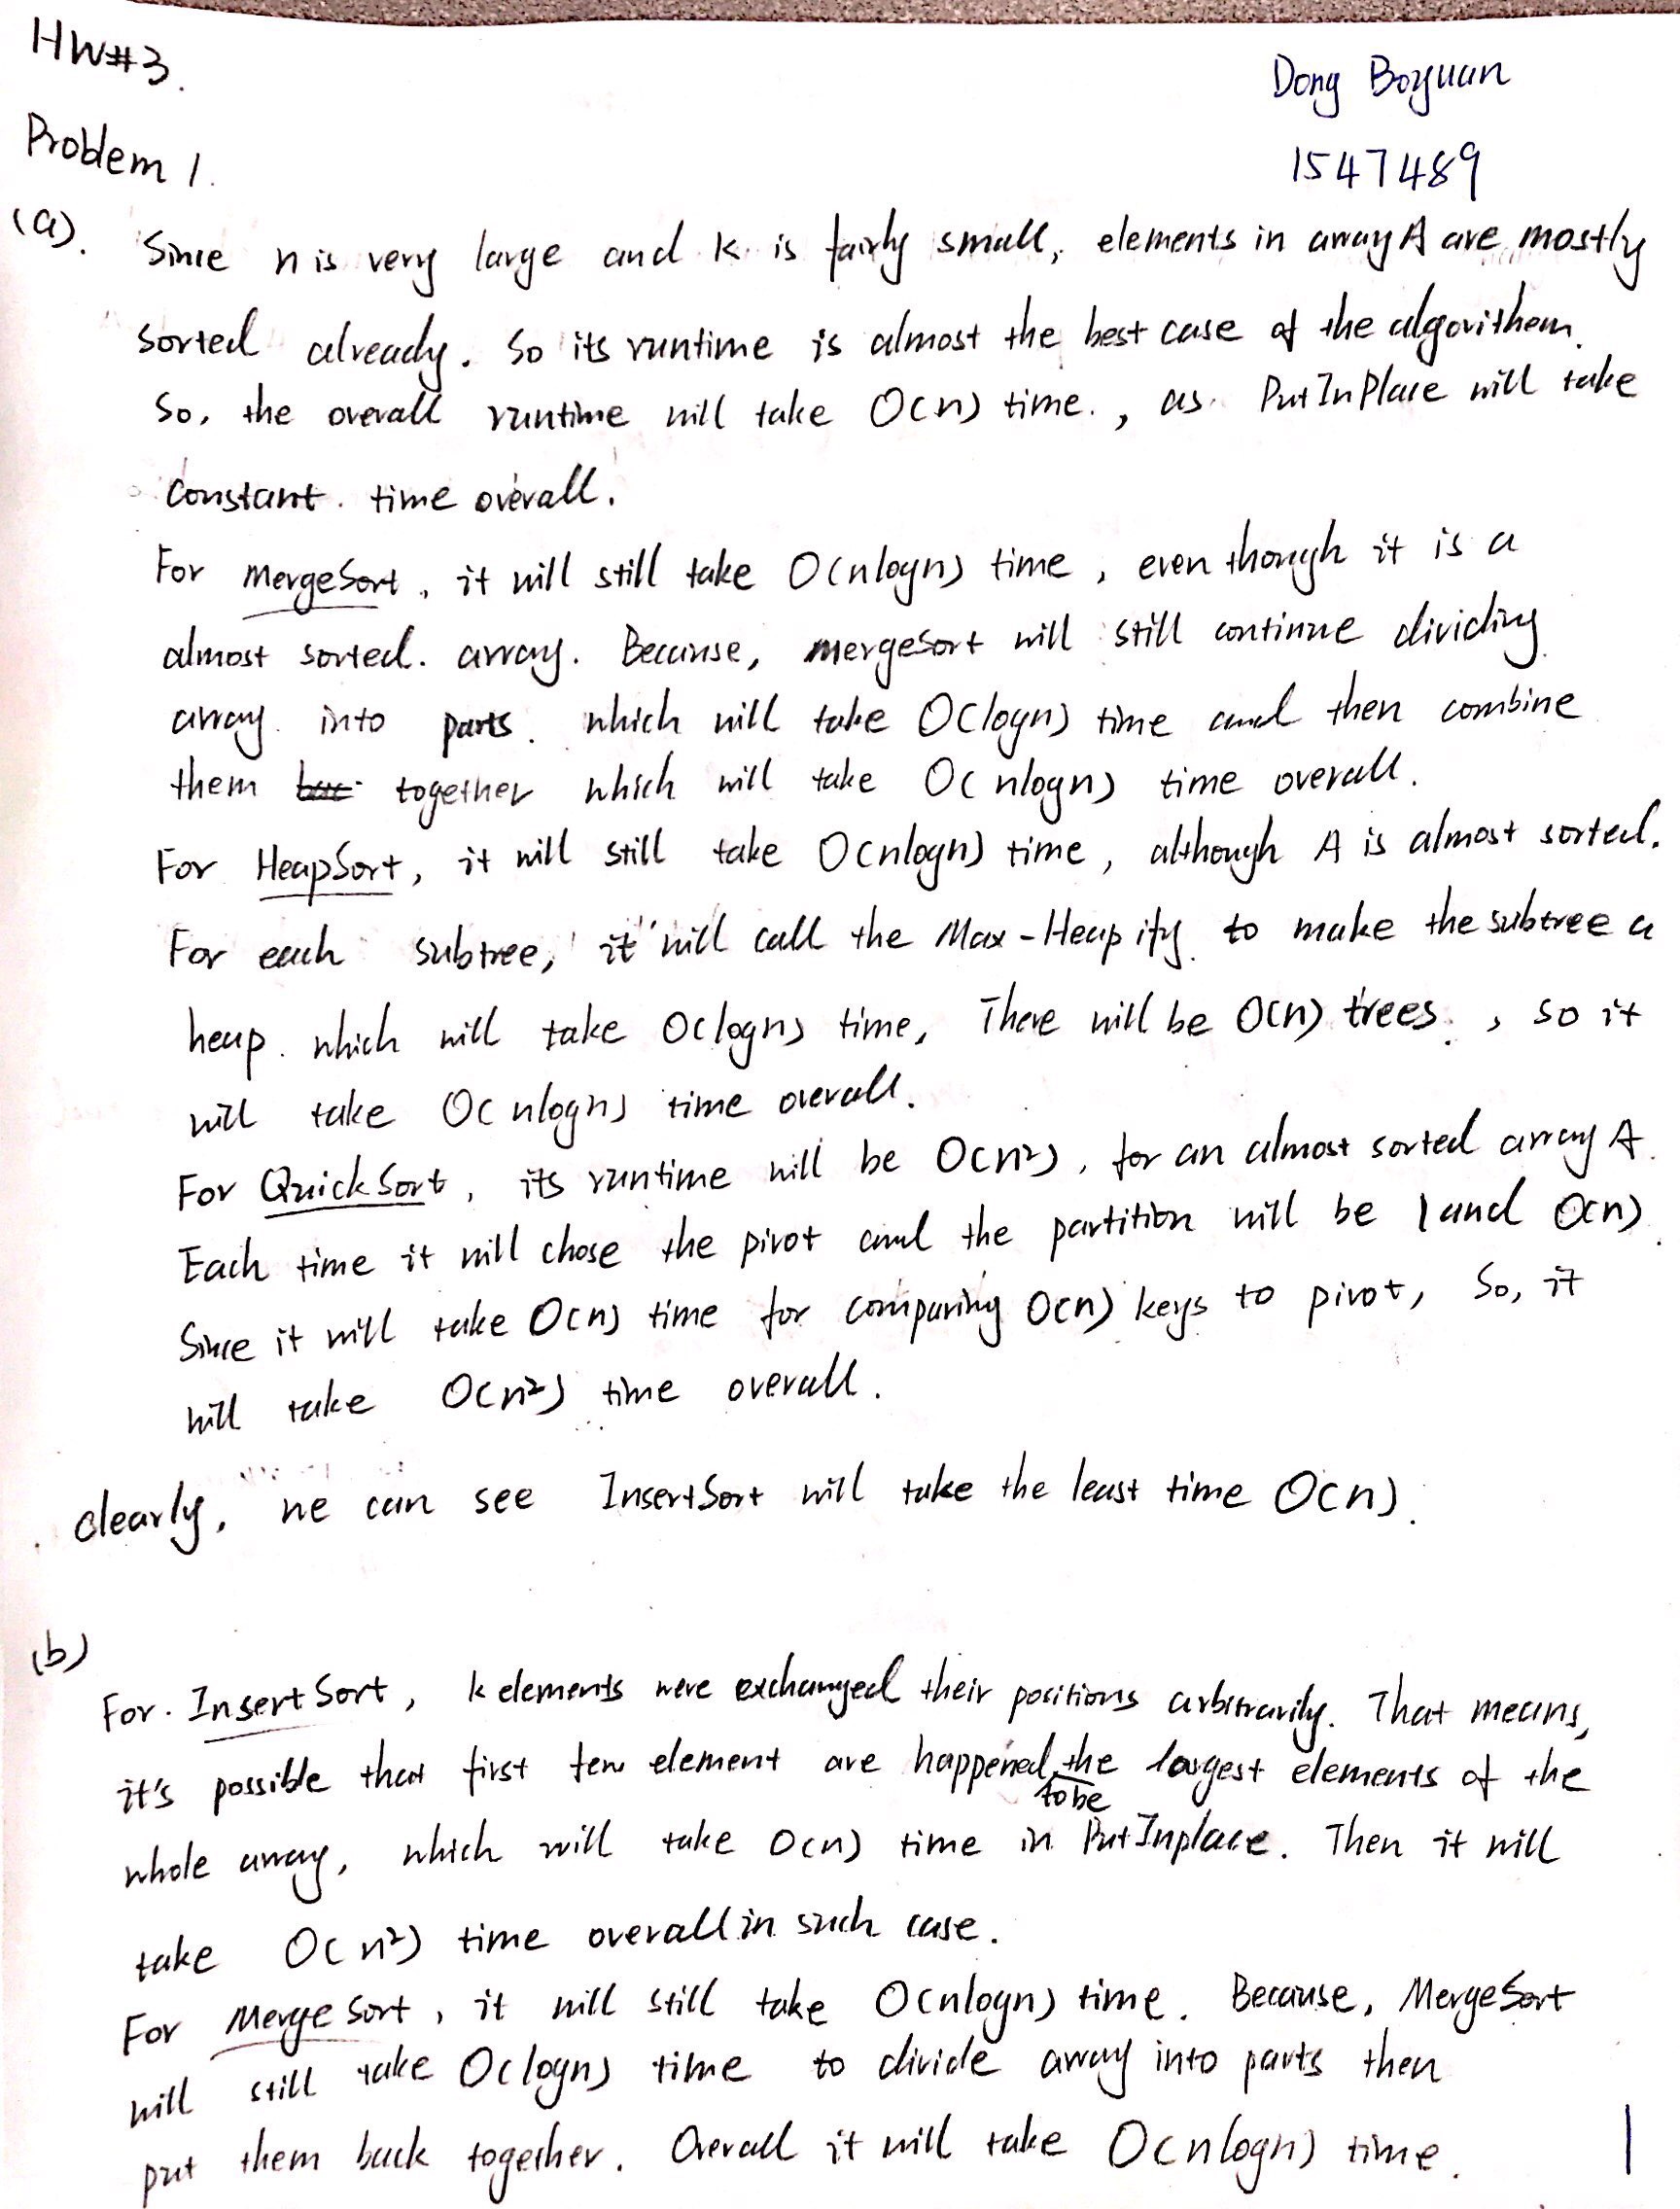 HW#3.
Dong Boyuan
Problem 1.
1547489
(a). Since n is very large and k is fairly small, elements in array A are mostly
sorted already. So its runtime is almost the best case of the algorithem.
So, the overall runtime will take O(n) time., as PutInPlace will take
constant time overall.
For MergeSort, it will still take O(nlogn) time, even though it is a
almost sorted. array. Because, mergeSort will still continue dividing
array into parts. which will take O(logn) time and then combine
them together which will take O(nlogn) time overall.
For HeapSort, it will still take O(nlogn) time, although A is almost sorted.
For each subtree, it will call the Max-Heapify to make the subtree a
heap. which will take O(logn) time, There will be O(n) trees., so it
will take O(nlogn) time overall.
For QuickSort, its runtime will be O(n²), for an almost sorted array A.
Each time it will chose the pivot and the partition will be 1 and O(n).
Since it will take O(n) time for comparing O(n) keys to pivot, So, it
will take O(n²) time overall.
clearly, we can see InsertSort will take the least time O(n).
(b)
For. InsertSort, k elements were exchanged their positions arbitrarily. That means,
it's possible that first few element are happened to be the largest elements of the
whole array, which will take O(n) time in PutInplace. Then it will
take O(n²) time overall in such case.
For MergeSort, it will still take O(nlogn) time. Because, MergeSort
will still take O(logn) time to divide array into parts then
put them back together. Overall it will take O(nlogn) time.
1